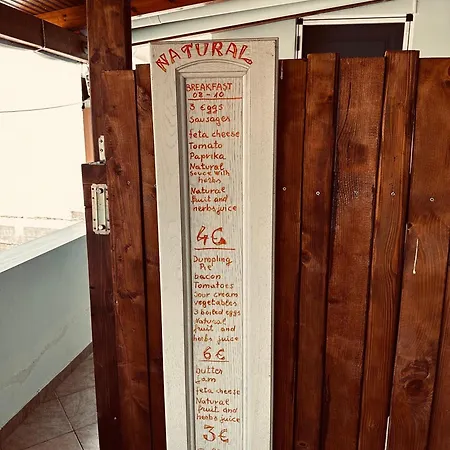 NATURAL
BREAKFAST
08 - 10
3 eggs
Sausages
feta cheese
Tomato
Paprika
Natural
souce with
herbs
Natural
fruit and
herbs juice
4€
Dumpling
Pie
bacon
Tomatoes
Sour cream
vegetables
3 boiled eggs
Natural
fruit and
herbs juice
6 €
butter
jam
feta cheese
Natural
fruit and
herbs juice
3€